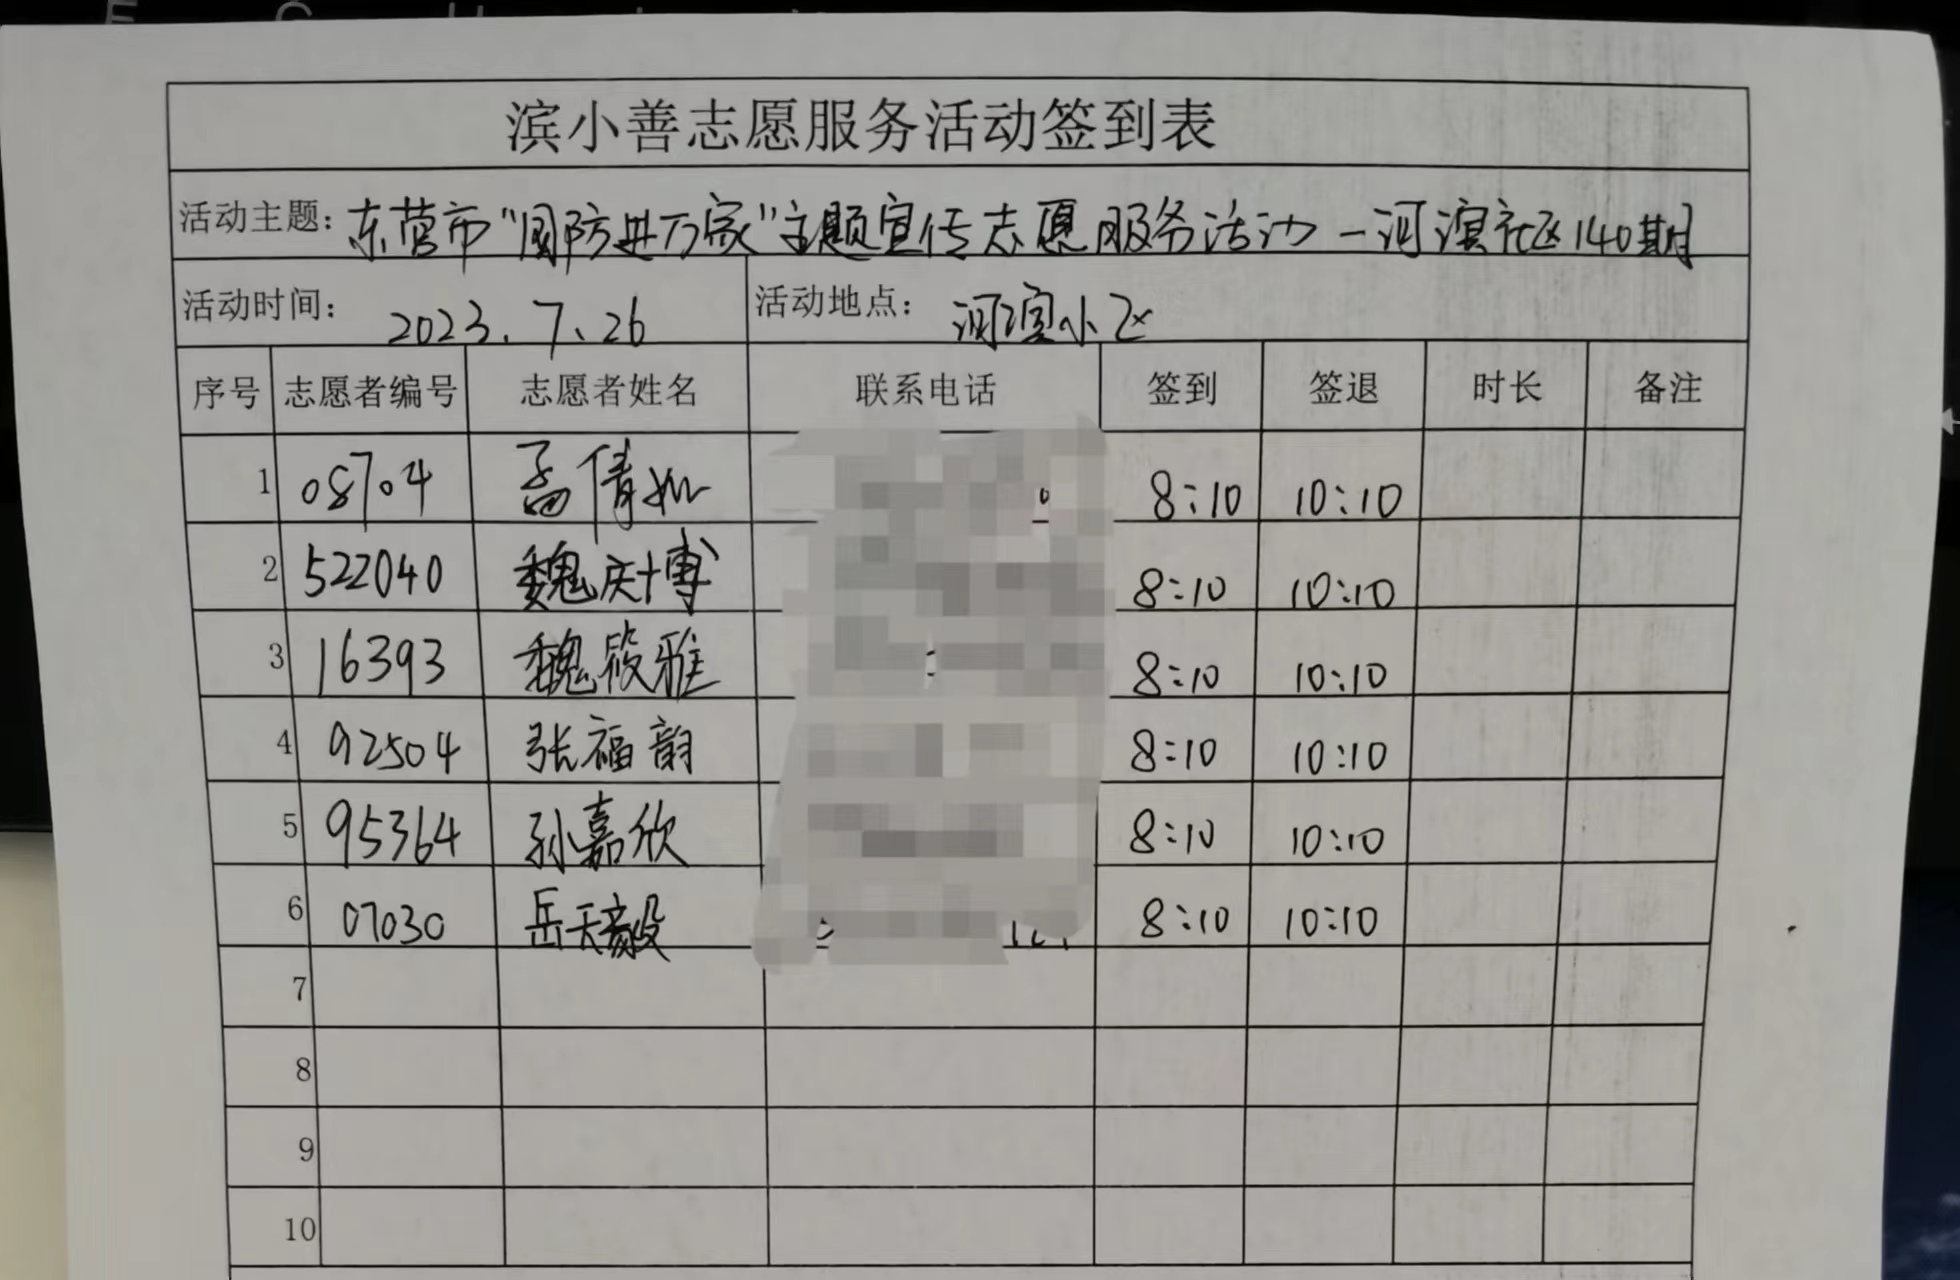 滨小善志愿服务活动签到表
活动主题：东营市“国防进万家”主题宣传志愿服务活动-河滨社区140期
活动时间：2023.7.26 活动地点：河滨小区
序号 志愿者编号 志愿者姓名 联系电话 签到 签退 时长 备注
1 08704 孟倩如 8:10 10:10
2 522040 魏庆博 8:10 10:10
3 16393 魏筱雅 8:10 10:10
4 92504 张福韵 8:10 10:10
5 95364 孙嘉欣 8:10 10:10
6 07030 岳天毅 8:10 10:10
7
8
9
10